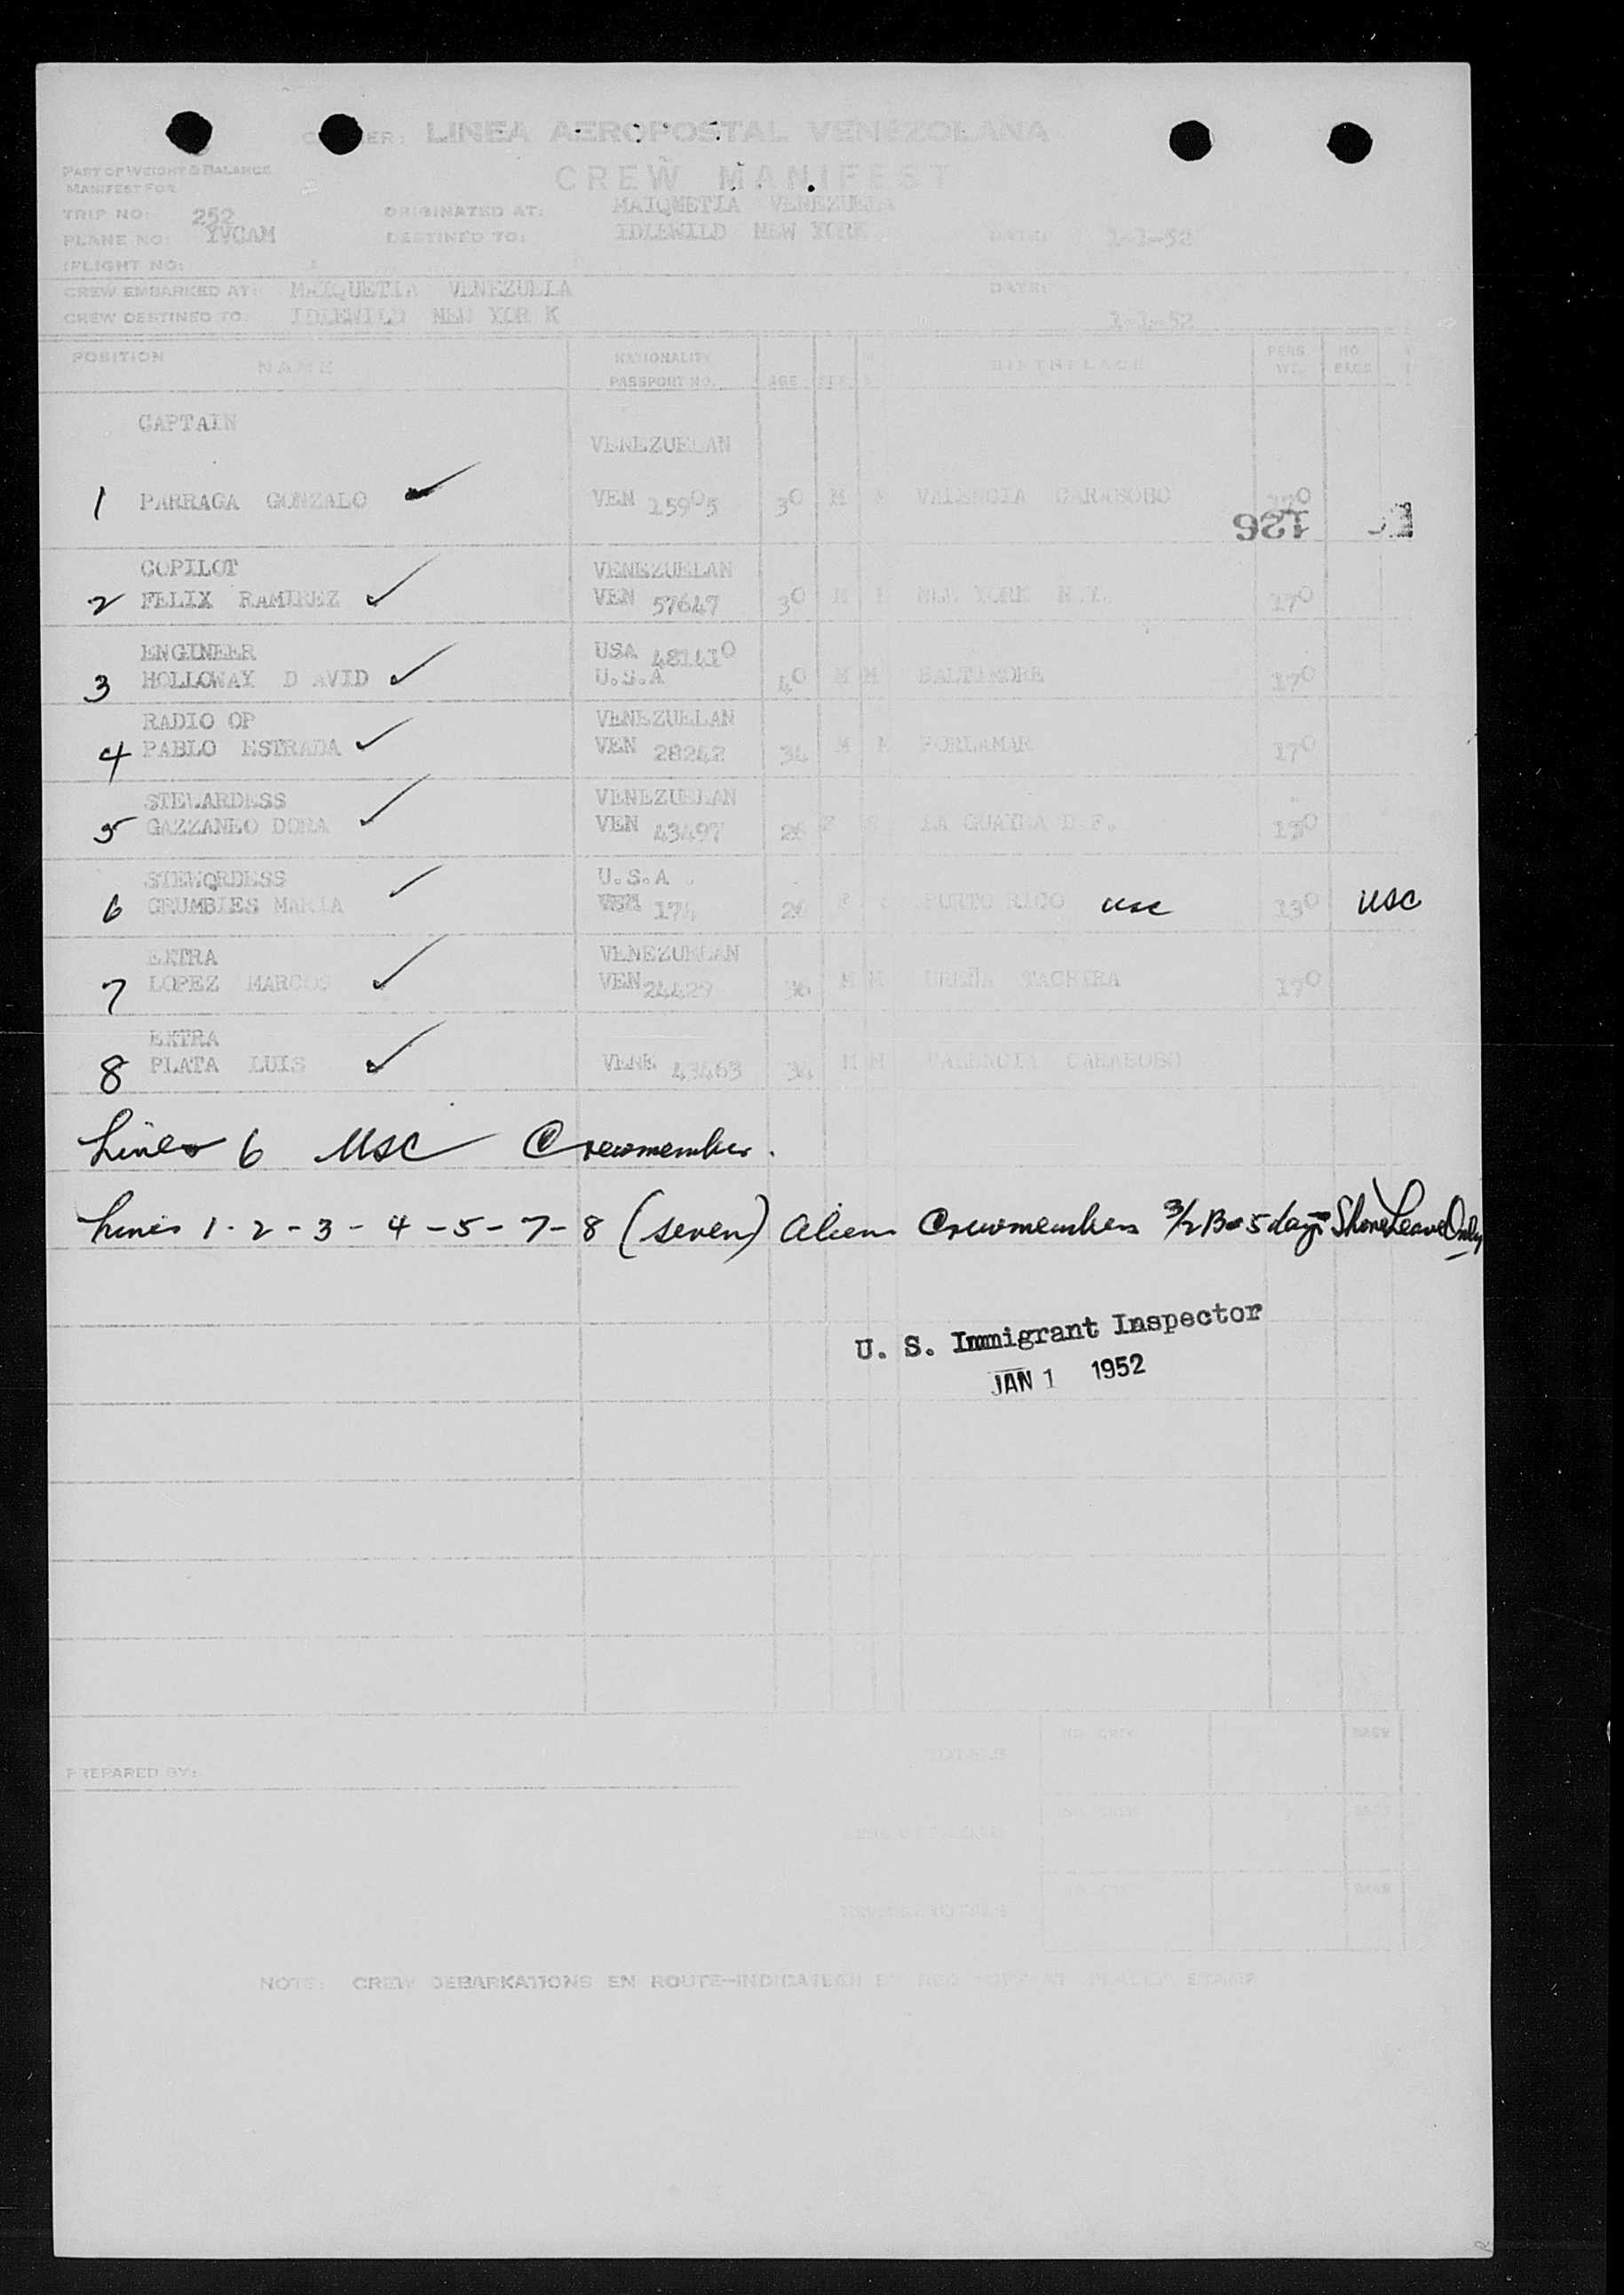 LINEA AEROPOSTAL VENEZOLANA
CREW MANIFEST
PART OF WEIGHT & BALANCE
MANIFEST FOR
TRIP NO: 252 ORIGINATED AT: MAIQUETIA VENEZUELA
PLANE NO: YVCAM DESTINED TO: IDLEWILD NEW YORK DATE: 1-1-52
FLIGHT NO:
CREW EMBARKED AT: MAIQUETIA VENEZUELA DATE:
CREW DESTINED TO: IDLEWILD NEW YOR K 1-1-52
POSITION NAME NATIONALITY PASSPORT NO. AGE SEX BIRTHPLACE PERS. WT. NO. BAGS
CAPTAIN
VENEZUELAN
1 PARRAGA GONZALO ✓ VEN 15905 30 M VALENCIA CARABOBO 170
126
COPILOT VENEZUELAN
2 FELIX RAMIREZ ✓ VEN 57647 30 M NEW YORK N.Y. 170
ENGINEER USA 481410
3 HOLLOWAY D AVID ✓ U.S.A 40 M M BALTIMORE 170
RADIO OP VENEZUELAN
4 PABLO ESTRADA ✓ VEN 28242 34 M PORLAMAR 170
STEWARDESS VENEZUELAN
5 GAZZANEO DORA ✓ VEN 43497 26 F LA GUAIRA D.F. 130
STEWORDESS ✓ U.S.A.
6 GRUMBIES MARIA VEN 174 26 F PURTO RICO usc 130 USC
EXTRA VENEZUELAN
7 LOPEZ MARCOS ✓ VEN 24429 36 M M UREÑA TACHIRA 170
EXTRA
8 PLATA LUIS ✓ VENE 43463 34 M M VALENCIA CARABOBO
Line 6 USC Crewmember.
Lines 1-2-3-4-5-7-8 (seven) Alien Crewmembers 3/2 B 5 days Shore Leave Only
U. S. Immigrant Inspector
JAN 1 1952
PREPARED BY: TOTALS NO. CREW BAGS
NO. CREW BAGS
NO. CREW BAGS
NOTE: CREW DEBARKATIONS EN ROUTE-INDICATE